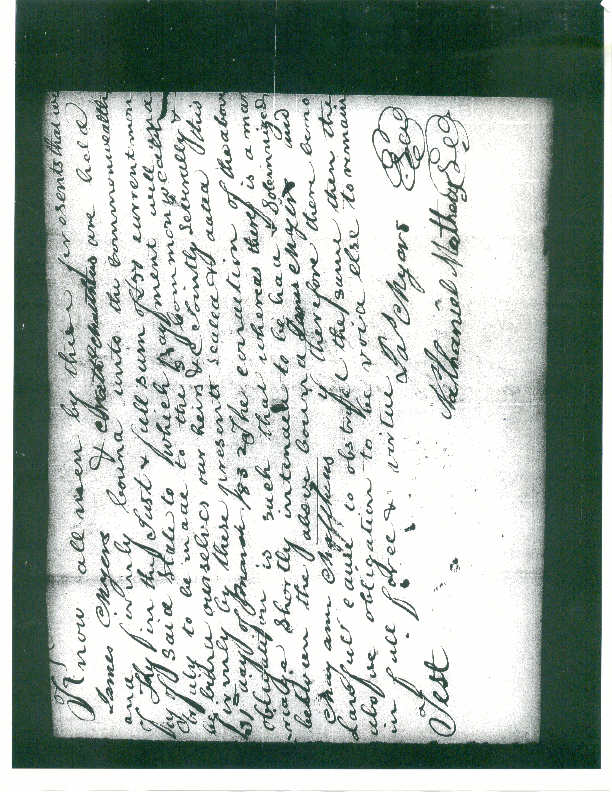 Know all men by these presents that we
James Myers & Nath Mathews are held
and firmly bound unto the Commonwealth
in the Just & full sum of current mon
of said State to which payment well &
truly to be made to the Commonwealth
bind ourselves our heirs & Jointly severally &
firmly by these presents sealed & dated this
day of 1832 The condition of the above
obligation is such that whereas there is a mar
riage shortly intended to be had & Solemnized
between the above bound James Myers and
Myam if therefore there be no
Lawful cause to obstruct the same then the
above obligation to be void else to remain
in full force & virtue
Jas Myers Seal
Nathaniel Mathews Seal
Test